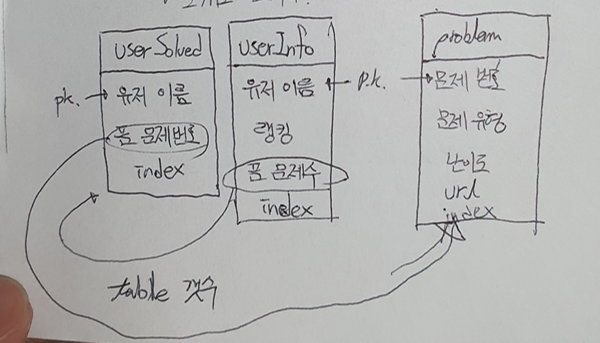 userSolved
pk.
유저 이름
푼 문제번호
index
userInfo
유저 이름
p.k.
랭킹
푼 문제수
index
problem
문제 번호
문제 유형
난이도
url
index
table 갯수